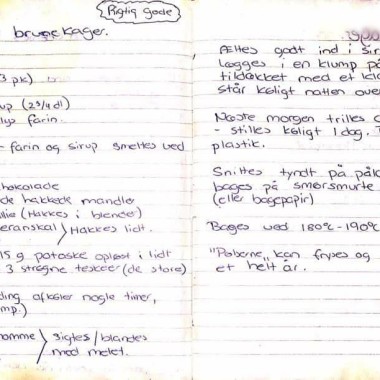 Rigtig gode
brunekager.
3 pk)
up (2 3/4 dl)
lys farin.
farin og sirup smeltes ved
hokolade
de hakkede mandler
llie (Hakkes i blender)
eranskal Hakkes lidt.
15 g potaske opløst i lidt
3 strøgne teskeer (de store)
ding afkøler nogle timer,
mp.)
nomme sigtes/blandes
med melet.
Æltes godt ind i sir
lægges i en klump på
tildækket med et kl
står køligt natten over
Næste morgen trilles
- stilles køligt 1 dag. T
plastik.
Snittes tyndt på pål
bages på smørsmurte
(eller bagepapir)
Bages ved 180°c-190°
"Pølserne" kan fryses og
et helt år.